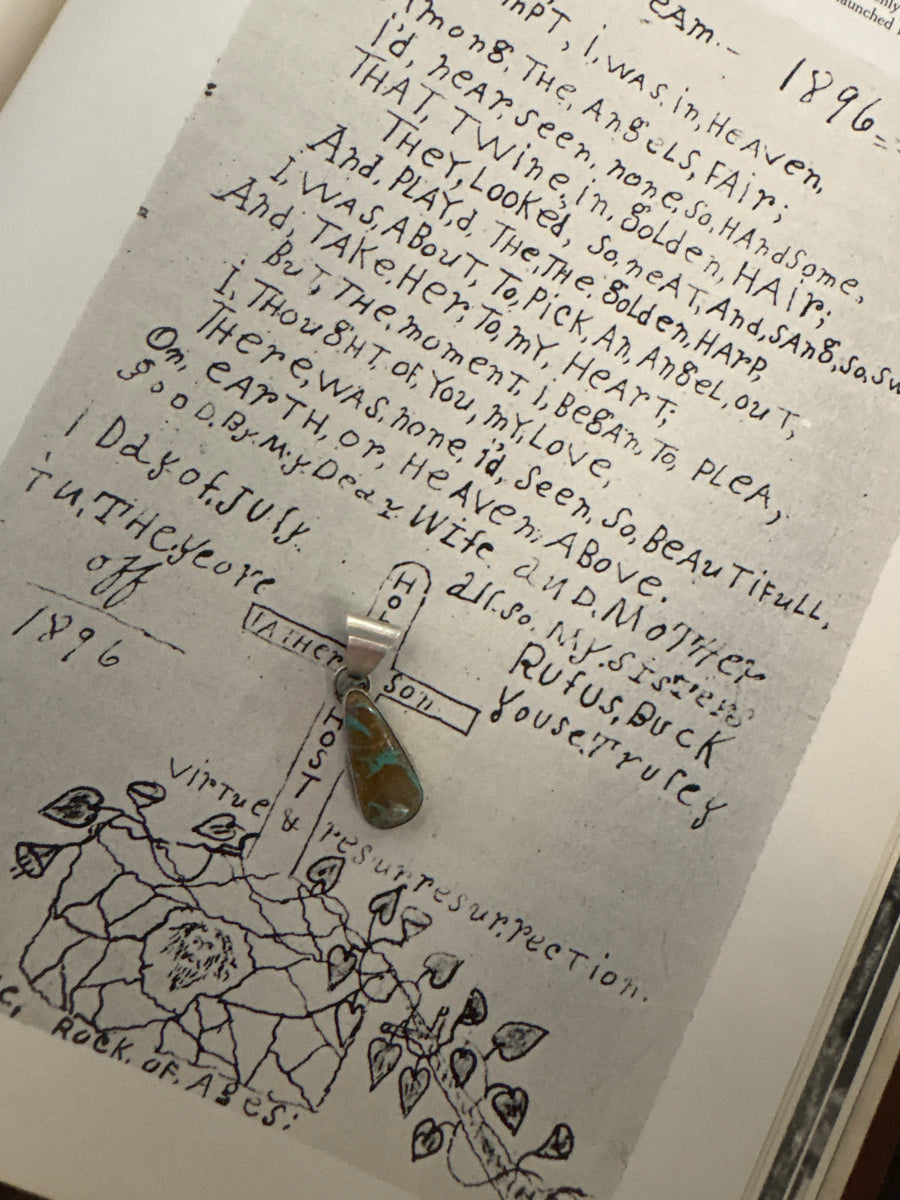 enly
launched
eAm.—
1896=
mPT, i, WAS, in, HeAven,
Among, THe, AngeLS, FAir;
i'd, neAr, seen, none, so, HAndSome,
THAT, TWine, in, golden, HAir;
THeY, LOOKed, So, neAT, And, SAng, So, Sw
And, PLAY,d, THe, THe, golden, HArp,
I, WAS, ABouT, To, PicK, An, Angel, ouT,
And, TAKe, Her, To, mY, HeArT;
BuT, THe, momenT, i, BegAn, To, PLeA,
I, THougHT, oF, You, mY, Love,
THere, WAS, none, i'd, Seen, So, BeAuTiFuLL,
On, eArTH, or, HeAven, ABove.
gooD. By. My. Dear. Wife. anD. MoTHer
all. so. My. sisTers
Rufus, Buck
Youse. Truley
1 Day of. July.
Tu, THe. yeore
off
1896
HoLY
FATHer
Son
HOST
virTue & resurresurrecTion.
RocK, OF, Ages: